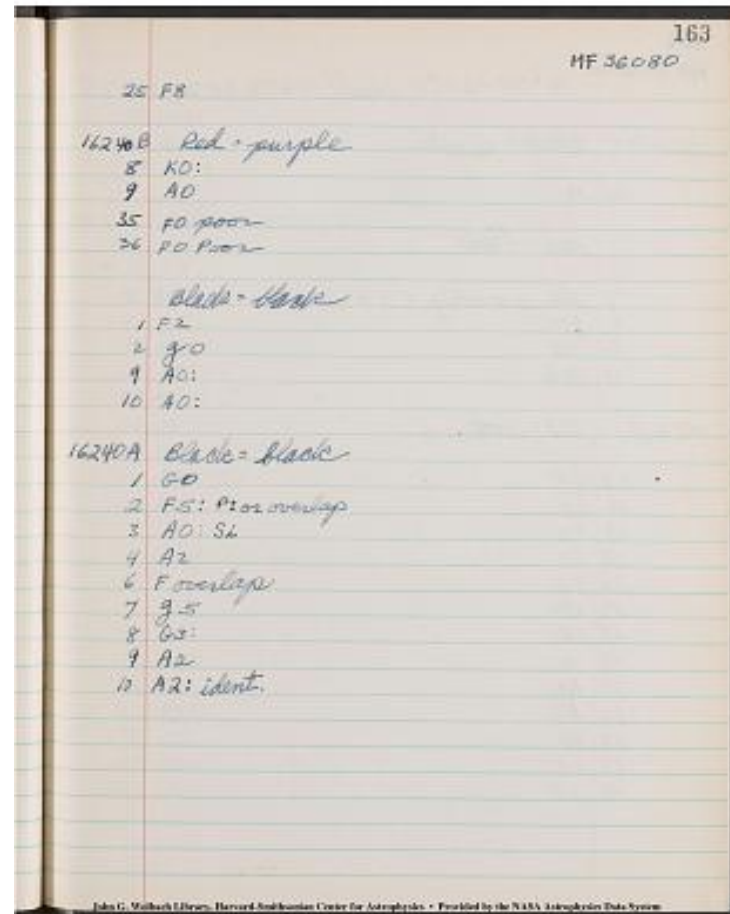 163
MF 36080
25 F8
16240B Red = purple
8 K0:
9 A0
35 F0 poor
36 F0 Poor
Black = black
1 F2
2 g0
9 A0:
10 A0:
16240A Black = black
1 G0
2 F5: P: or overlap
3 A0: SL
4 A2
6 F overlap
7 g5
8 G5:
9 A2
10 A2: ident.
John G. Wolbach Library, Harvard-Smithsonian Center for Astrophysics • Provided by the NASA Astrophysics Data System